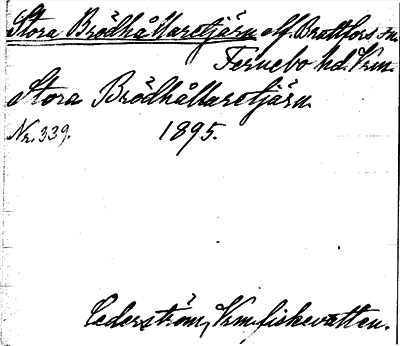 Stora Brödhållaretjärn elf. Brattfors sn.
Fernebo hd. Vrm.
Stora Brödhållaretjärn.
Nr. 339. 1895.
Cederström, Vrm. fiskevatten.